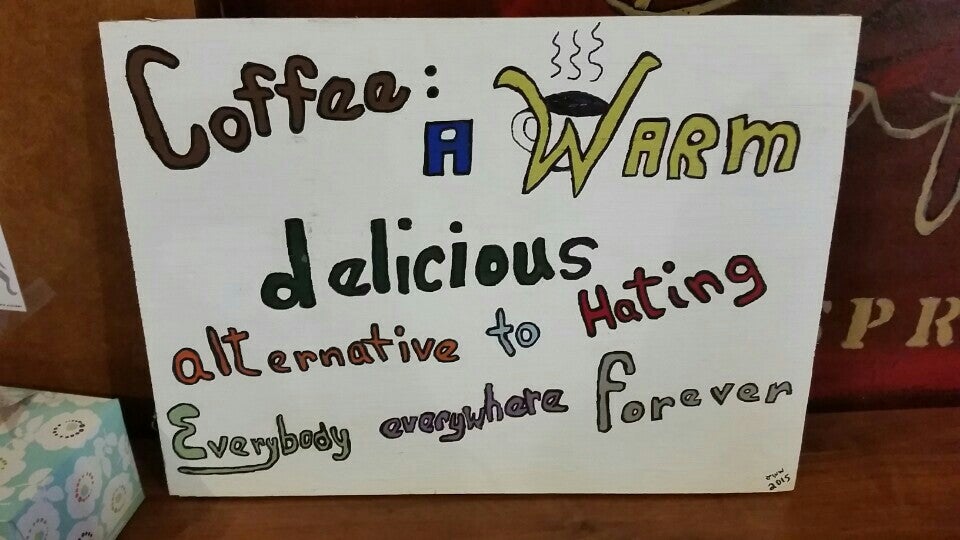 Coffee:
A WARM
delicious
alternative to Hating
Everybody everywhere forever
2015
PR